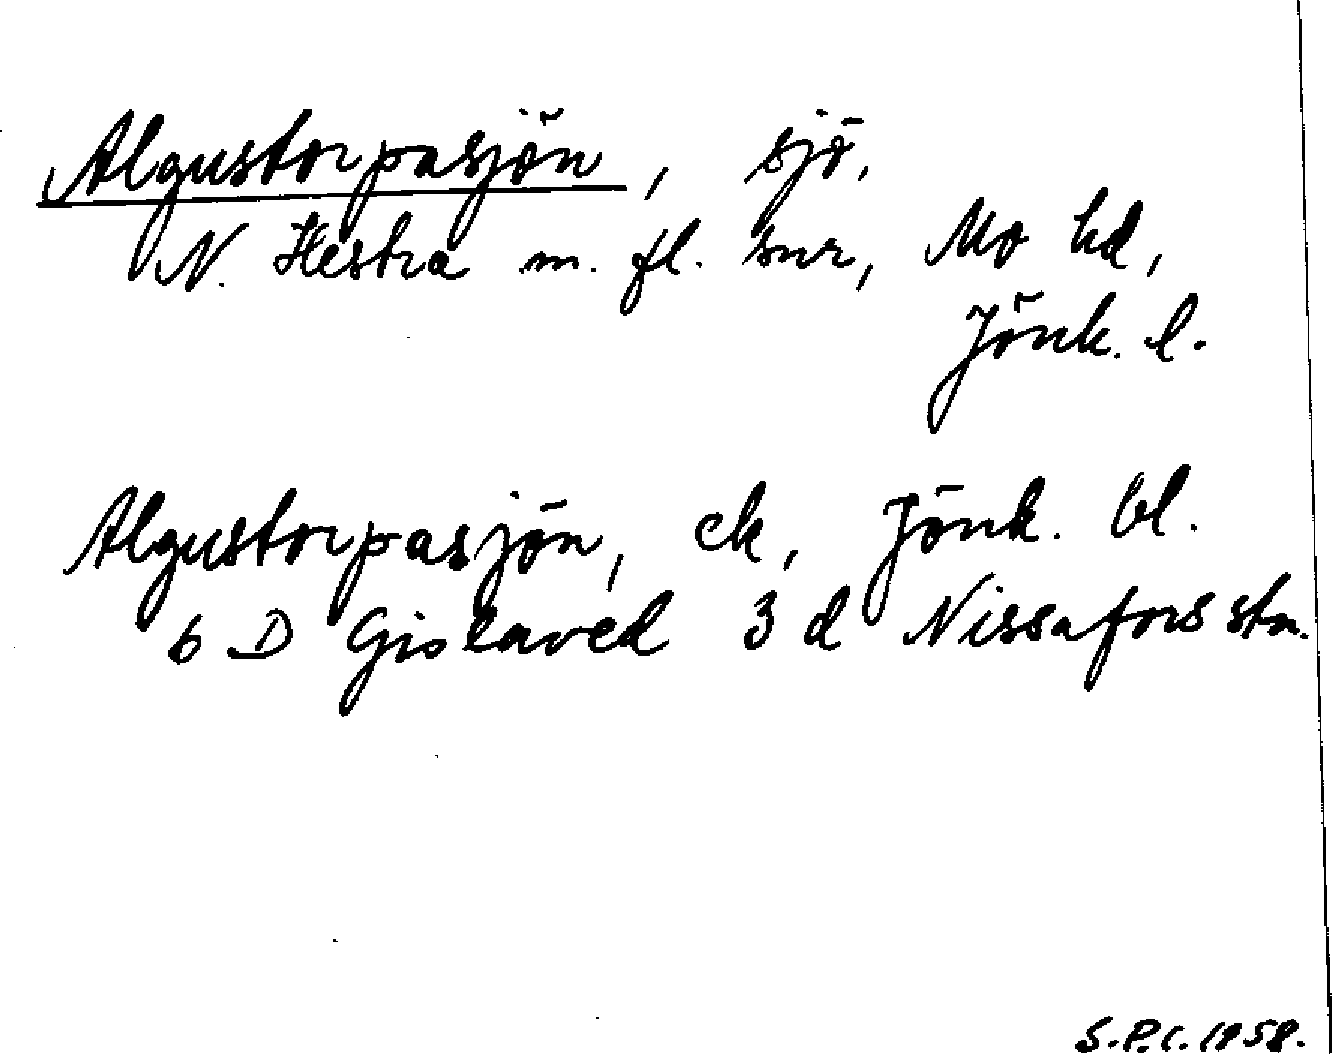 Algustorpasjön, sjö,
N. Hestra m. fl. snr, Mo hd,
Jönk. l.
Algustorpasjön, ek, Jönk. bl.
6 D Gislaved 3 d Nissafors stn.
S.P.C. 1958.